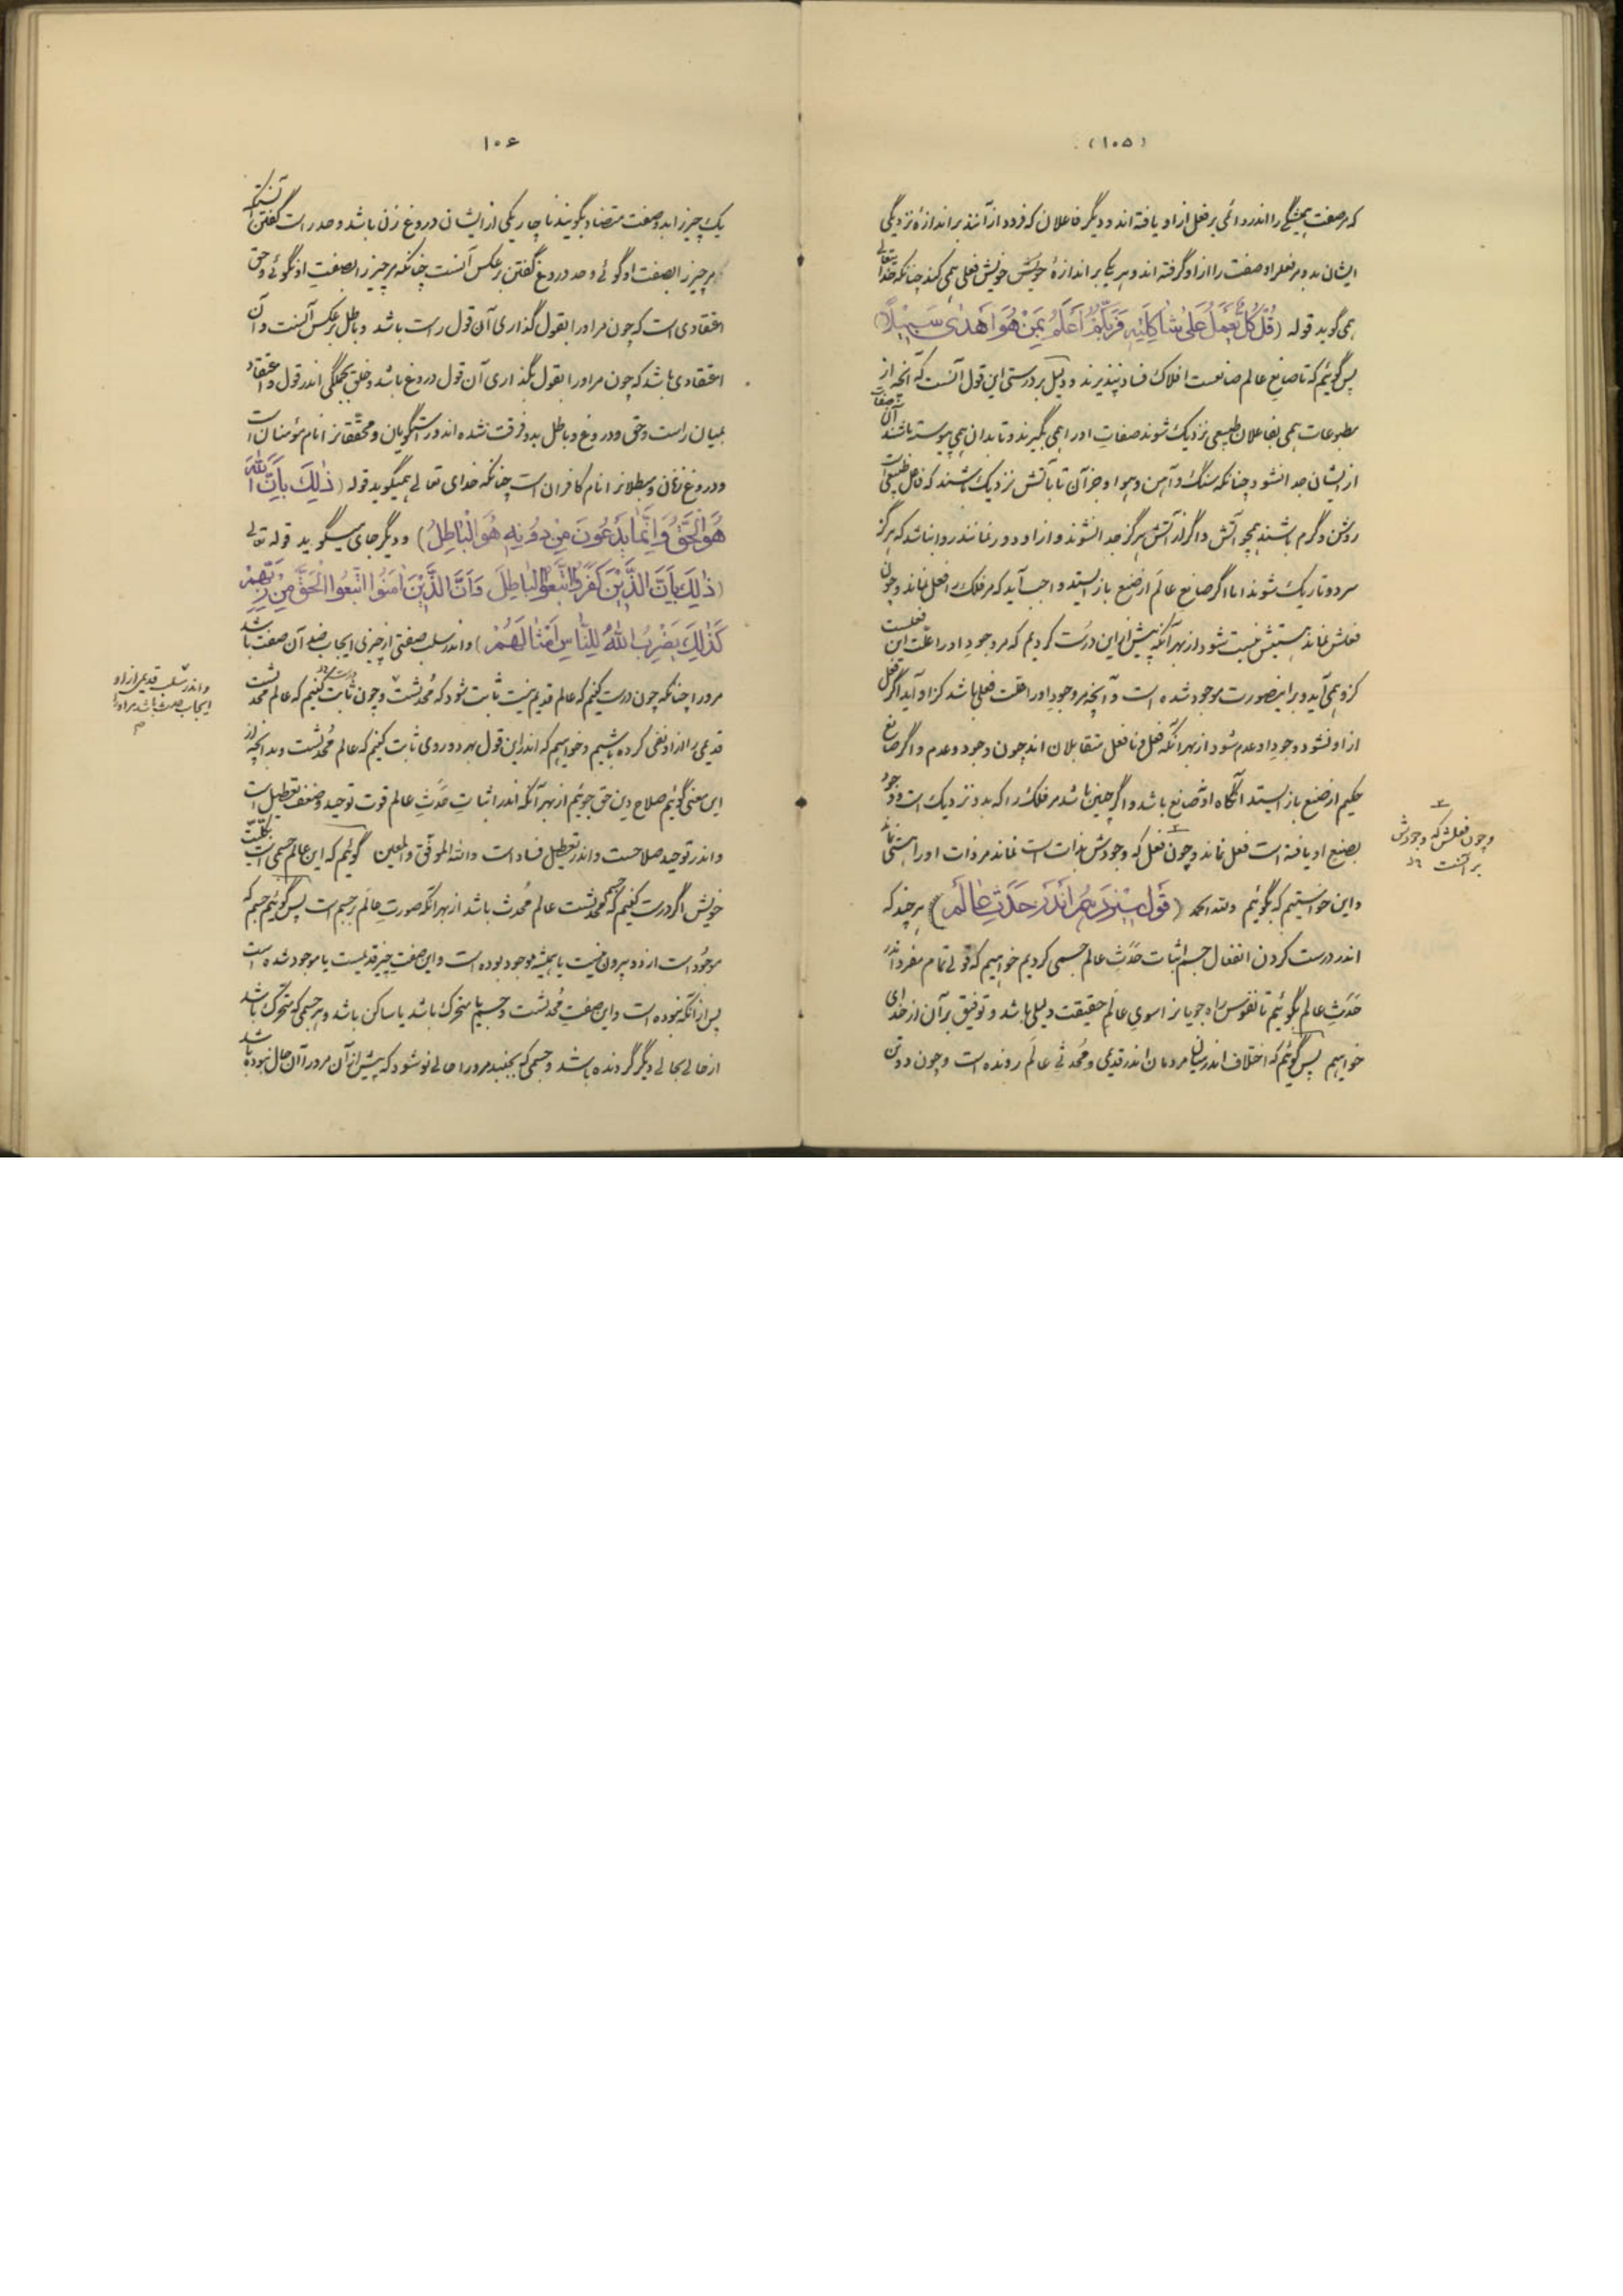 (۱۰۵)
که مر صفت همیشگی را اندر دائمی بر فعل از او یافته اند و دیگر فاعلان که فرود از آنند بر اندازهٔ نزدیکی
ایشان بدو مر فعل او صفت را از او گرفته اند و هر یکی بر اندازهٔ خویش فعلی همی کند چنانکه خدایتعالی
همی گوید قوله (قُلْ كُلٌّ يَعْمَلُ عَلَىٰ شَاكِلَتِهِ فَرَبُّكُمْ أَعْلَمُ بِمَنْ هُوَ أَهْدَىٰ سَبِيلًا)
پس گوئیم که تا صانع عالم صانعست افلاک فساد نپذیرند و دلیل بر درستی این قول آنست که آنچه از
مطبوعات همی بفاعلان طبیعی نزدیک شوند صفات او را همی بگیرند و تا بدان همی پیوسته باشند آن صفات
از ایشان جدا نشود چنانکه سنگ و آهن و هوا و جز آن تا بآتش نزدیک باشند که فاعل طبیعی است
روشن و گرم باشند همچو آتش و اگر از آتش هرگز جدا نشوند و از او دور نمانند روا نباشد که هرگز
سرد و تاریک شوند اما اگر صانع عالم از صنع باز ایستد واجب آید که مر فلک را فعل نماند و چون
فعلش نماند هستیش نیست شود از بهر آنکه پیش از این درست کردیم که مر وجود او را علت این فعلست
کزو همی آید و بر این صورت موجود شده است و آنچه مر وجود او را علت فعلی باشد کز او آید اگر فعل
از او نشود وجود او عدم شود از بهر آنکه فعل و نافعل متقابلان اند چون وجود و عدم و اگر صانع
حکیم از صنع باز ایستد آنگاه او نه صانع باشد و اگر چنین باشد مر فلک را که بدو نزدیک است وجود
بصنع او یافته است فعل نماند و چون فعل که وجودش بذات است نماند مر ذات او را هستی نماند
و این خواستیم که بگوئیم ولله الحمد (قول سیزدهم اندر حدث عالم) هر چند که
اندر درست کردن انفعال جسم اثبات حدث عالم جسمی کردیم خواهیم که قولی تمام مفرد اندر
حدث عالم بگوئیم تا نفوس راه جویانرا سوی عالم حقیقت دلیلی باشد و توفیق بر آن از خدای
خواهیم پس گوئیم که اختلاف اندر میان مردمان اندر قدیمی و محدثی عالم رونده است و چون دو تن
و چون فعلش که وجودش
بر آنست
۱۰۶
یک چیز را بدو صفت متضاد بگویند ناچار یکی از ایشان دروغ زن باشد و حد راست گفتن آنستکه
مر چیز را بصفت او گوئی و حد دروغ گفتن بر عکس آنست چنانکه مر چیز را بصفت او نگوئی و حق
اعتقادی است که چون مر او را بقول گذاری آن قول راست باشد و باطل بر عکس آنست و آن
اعتقادی باشد که چون مر او را بقول بگذاری آن قول دروغ باشد و خلق بجملگی اندر قول و اعتقاد
بمیان راست و حق و دروغ و باطل بدو فرقت شده اند و راستگویان و محققانرا نام مؤمنان است
و دروغ زنان و مبطلانرا نام کافران است چنانکه خدای تعالی همیگوید قوله (ذَٰلِكَ بِأَنَّ اللَّهَ
هُوَ الْحَقُّ وَ اِنَّمَا يَدْعُونَ مِنْ دُونِهِ هُوَ الْبَاطِلُ) و دیگر جای میگوید قوله تعالی
(ذَٰلِكَ بِأَنَّ الَّذِينَ كَفَرُوا اتَّبَعُوا الْبَاطِلَ وَأَنَّ الَّذِينَ آمَنُوا اتَّبَعُوا الْحَقَّ مِنْ رَبِّهِمْ
كَذَٰلِكَ يَضْرِبُ اللَّهُ لِلنَّاسِ أَمْثَالَهُمْ) و اندر سلب صفتی از چیزی ایجاب ضد آن صفت باشد
مر ورا چنانکه چون درست کنیم که عالم قدیم نیست ثابت شود که محدثست و چون ثابت کنیم که عالم محدثست
قدیمی را از او نفی کرده باشیم و خواهیم که اندر این قول بهر دو روی ثابت کنیم که عالم محدثست و بدانچه از
این معنی گوئیم صلاح دین حق جوئیم از بهر آنکه اندر اثبات حدث عالم قوت توحید و ضعف تعطیل است
و اندر توحید صلاحست و اندر تعطیل فساد است والله الموفق والمعین گوئیم که این عالم جسمی است بکلیت
خویش اگر درست کنیم که جسم محدثست عالم محدث باشد از بهر آنکه صورت عالم بر جسم است پس گوئیم جسم که
موجود است از دو بیرون نیست یا همیشه موجود بوده است و این صفت چیز قدیمست یا موجود شده است
پس از آنکه نبوده است و این صفت محدثست و جسم یا متحرک باشد یا ساکن باشد و هر جسمی که متحرک باشد
از حالی بحالی دیگر گردنده باشد و جسمی که بجنبد مرورا حالی نو شود که پیش از آن مرورا آن حال نبوده باشد
و اندر سلب قدیمی از او
ایجاب حدث باشد مر او را